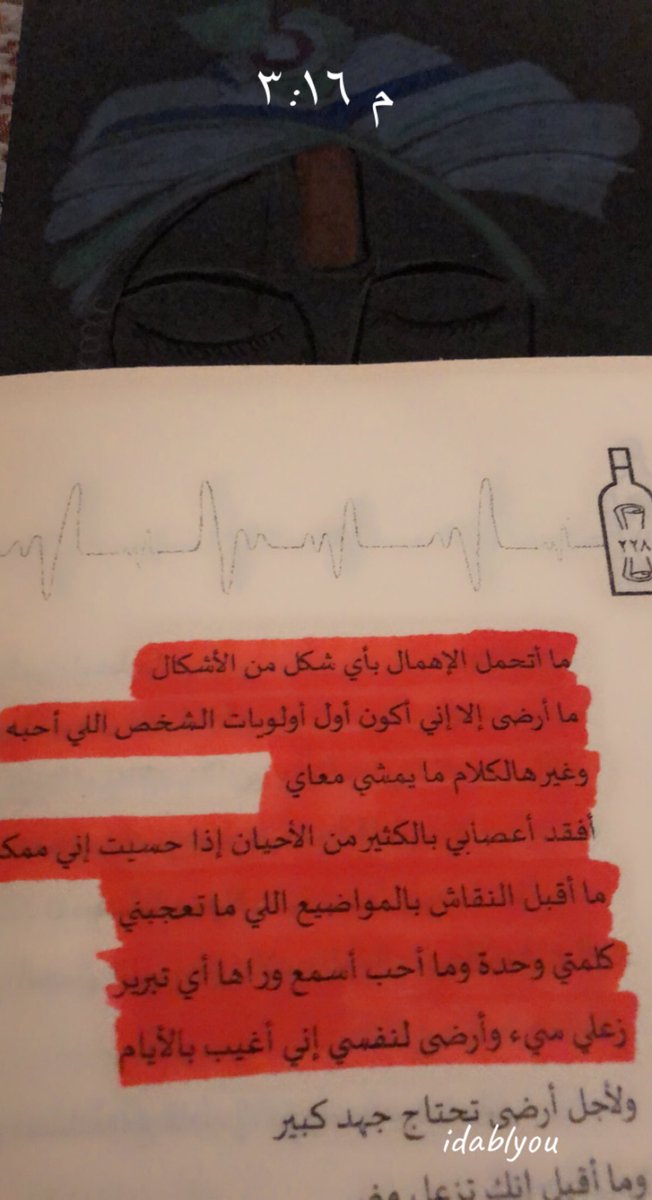 ٣:١٦ م
٢٢٨
ما أتحمل الإهمال بأي شكل من الأشكال
ما أرضى إلا إني أكون أول أولويات الشخص اللي أحبه
وغير هالكلام ما يمشي معاي
أفقد أعصابي بالكثير من الأحيان إذا حسيت إني
ما أقبل النقاش بالمواضيع اللي ما تعجبني
كلمتي وحدة وما أحب أسمع وراها أي تبرير
زعلي سيء وأرضى لنفسي إني أغيب بالأيام
ولأجل أرضى تحتاج جهد كبير
idablyou
وما أقبل انك تزعل